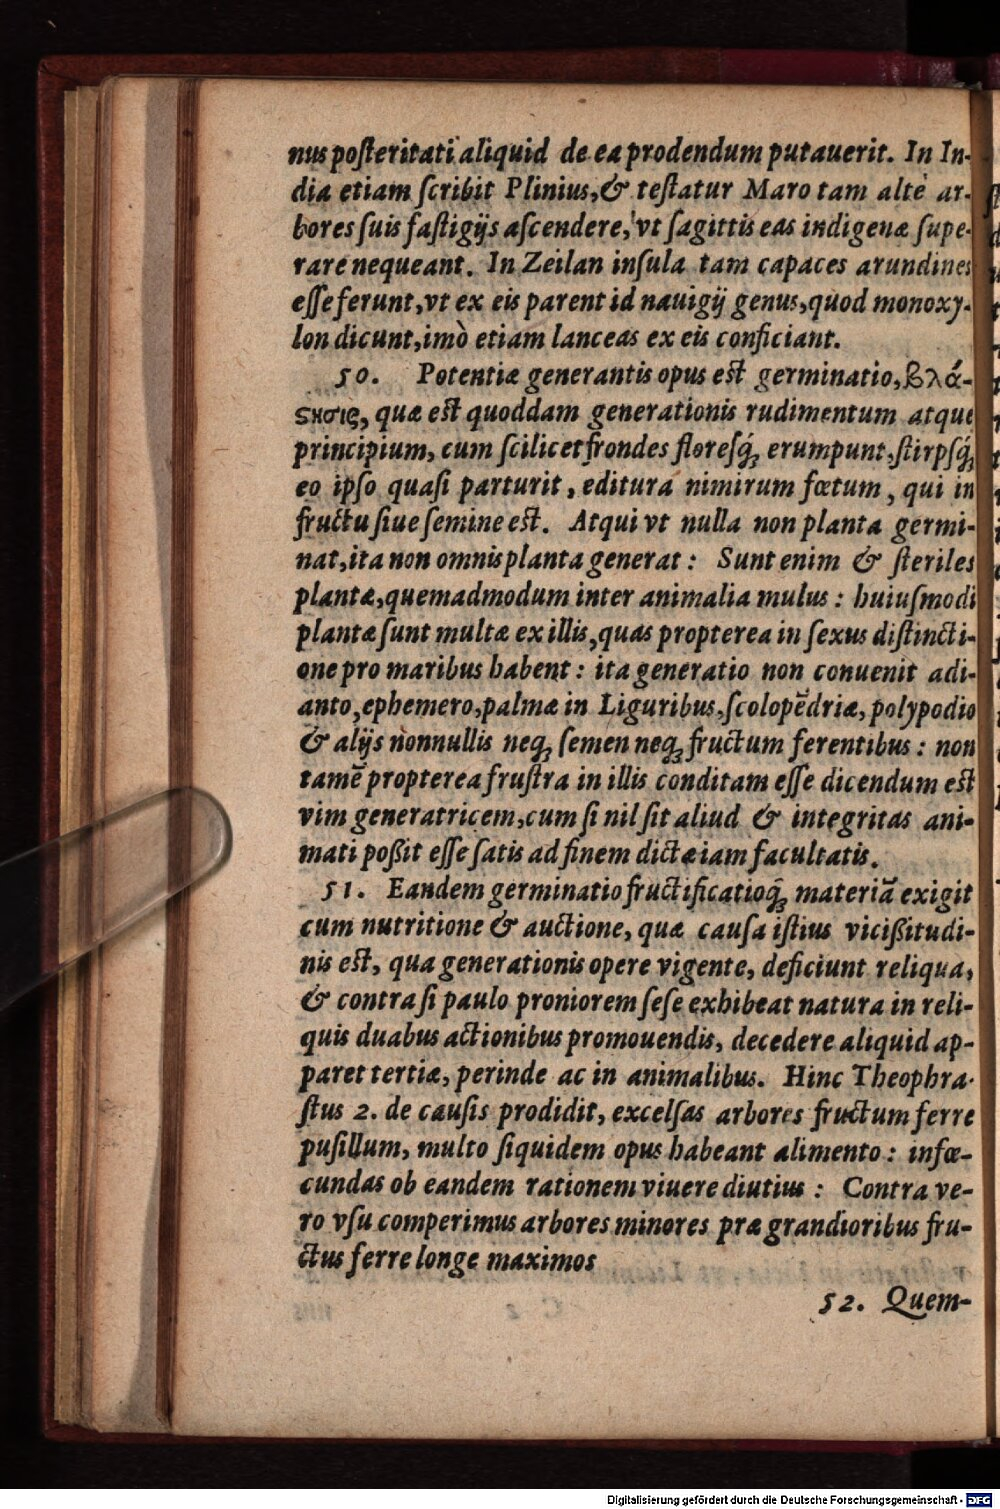 nus posteritati aliquid de ea prodendum putauerit. In In-
dia etiam scribit Plinius, & testatur Maro tam altè ar-
bores suis fastigijs ascendere, vt sagittis eas indigenæ supe-
rare nequeant. In Zeilan insula tam capaces arundines
esse ferunt, vt ex eis parent id nauigij genus, quod monoxy-
lon dicunt, imò etiam lanceas ex eis conficiant.
50. Potentiæ generantis opus est germinatio, βλά-
ϛησις, quæ est quoddam generationis rudimentum atque
principium, cum scilicet frondes floresq́; erumpunt, stirpsq́;
eo ipso quasi parturit, editura nimirum fœtum, qui in
fructu siue semine est. Atqui vt nulla non planta germi-
nat, ita non omnis planta generat: Sunt enim & steriles
plantæ, quemadmodum inter animalia mulus: huiusmodi
plantæ sunt multæ ex illis, quas propterea in sexus distincti-
one pro maribus habent: ita generatio non conuenit adi-
anto, ephemero, palmæ in Liguribus, scolopēdriæ, polypodio
& alijs nonnullis neq; semen neq; fructum ferentibus: non
tamē propterea frustra in illis conditam esse dicendum est
vim generatricem, cum si nil sit aliud & integritas ani-
mati poßit esse satis ad finem dictæ iam facultatis.
51. Eandem germinatio fructificatioq́; materiā exigit
cum nutritione & auctione, quæ causa istius vicißitudi-
nis est, qua generationis opere vigente, deficiunt reliqua,
& contra si paulo proniorem sese exhibeat natura in reli-
quis duabus actionibus promouendis, decedere aliquid ap-
paret tertiæ, perinde ac in animalibus. Hinc Theophra-
stus 2. de causis prodidit, excelsas arbores fructum ferre
pusillum, multo siquidem opus habeant alimento: infœ-
cundas ob eandem rationem viuere diutius: Contra ve-
ro vsu comperimus arbores minores præ grandioribus fru-
ctus ferre longe maximos
52. Quem-
Digitalisierung gefördert durch die Deutsche Forschungsgemeinschaft - DFG